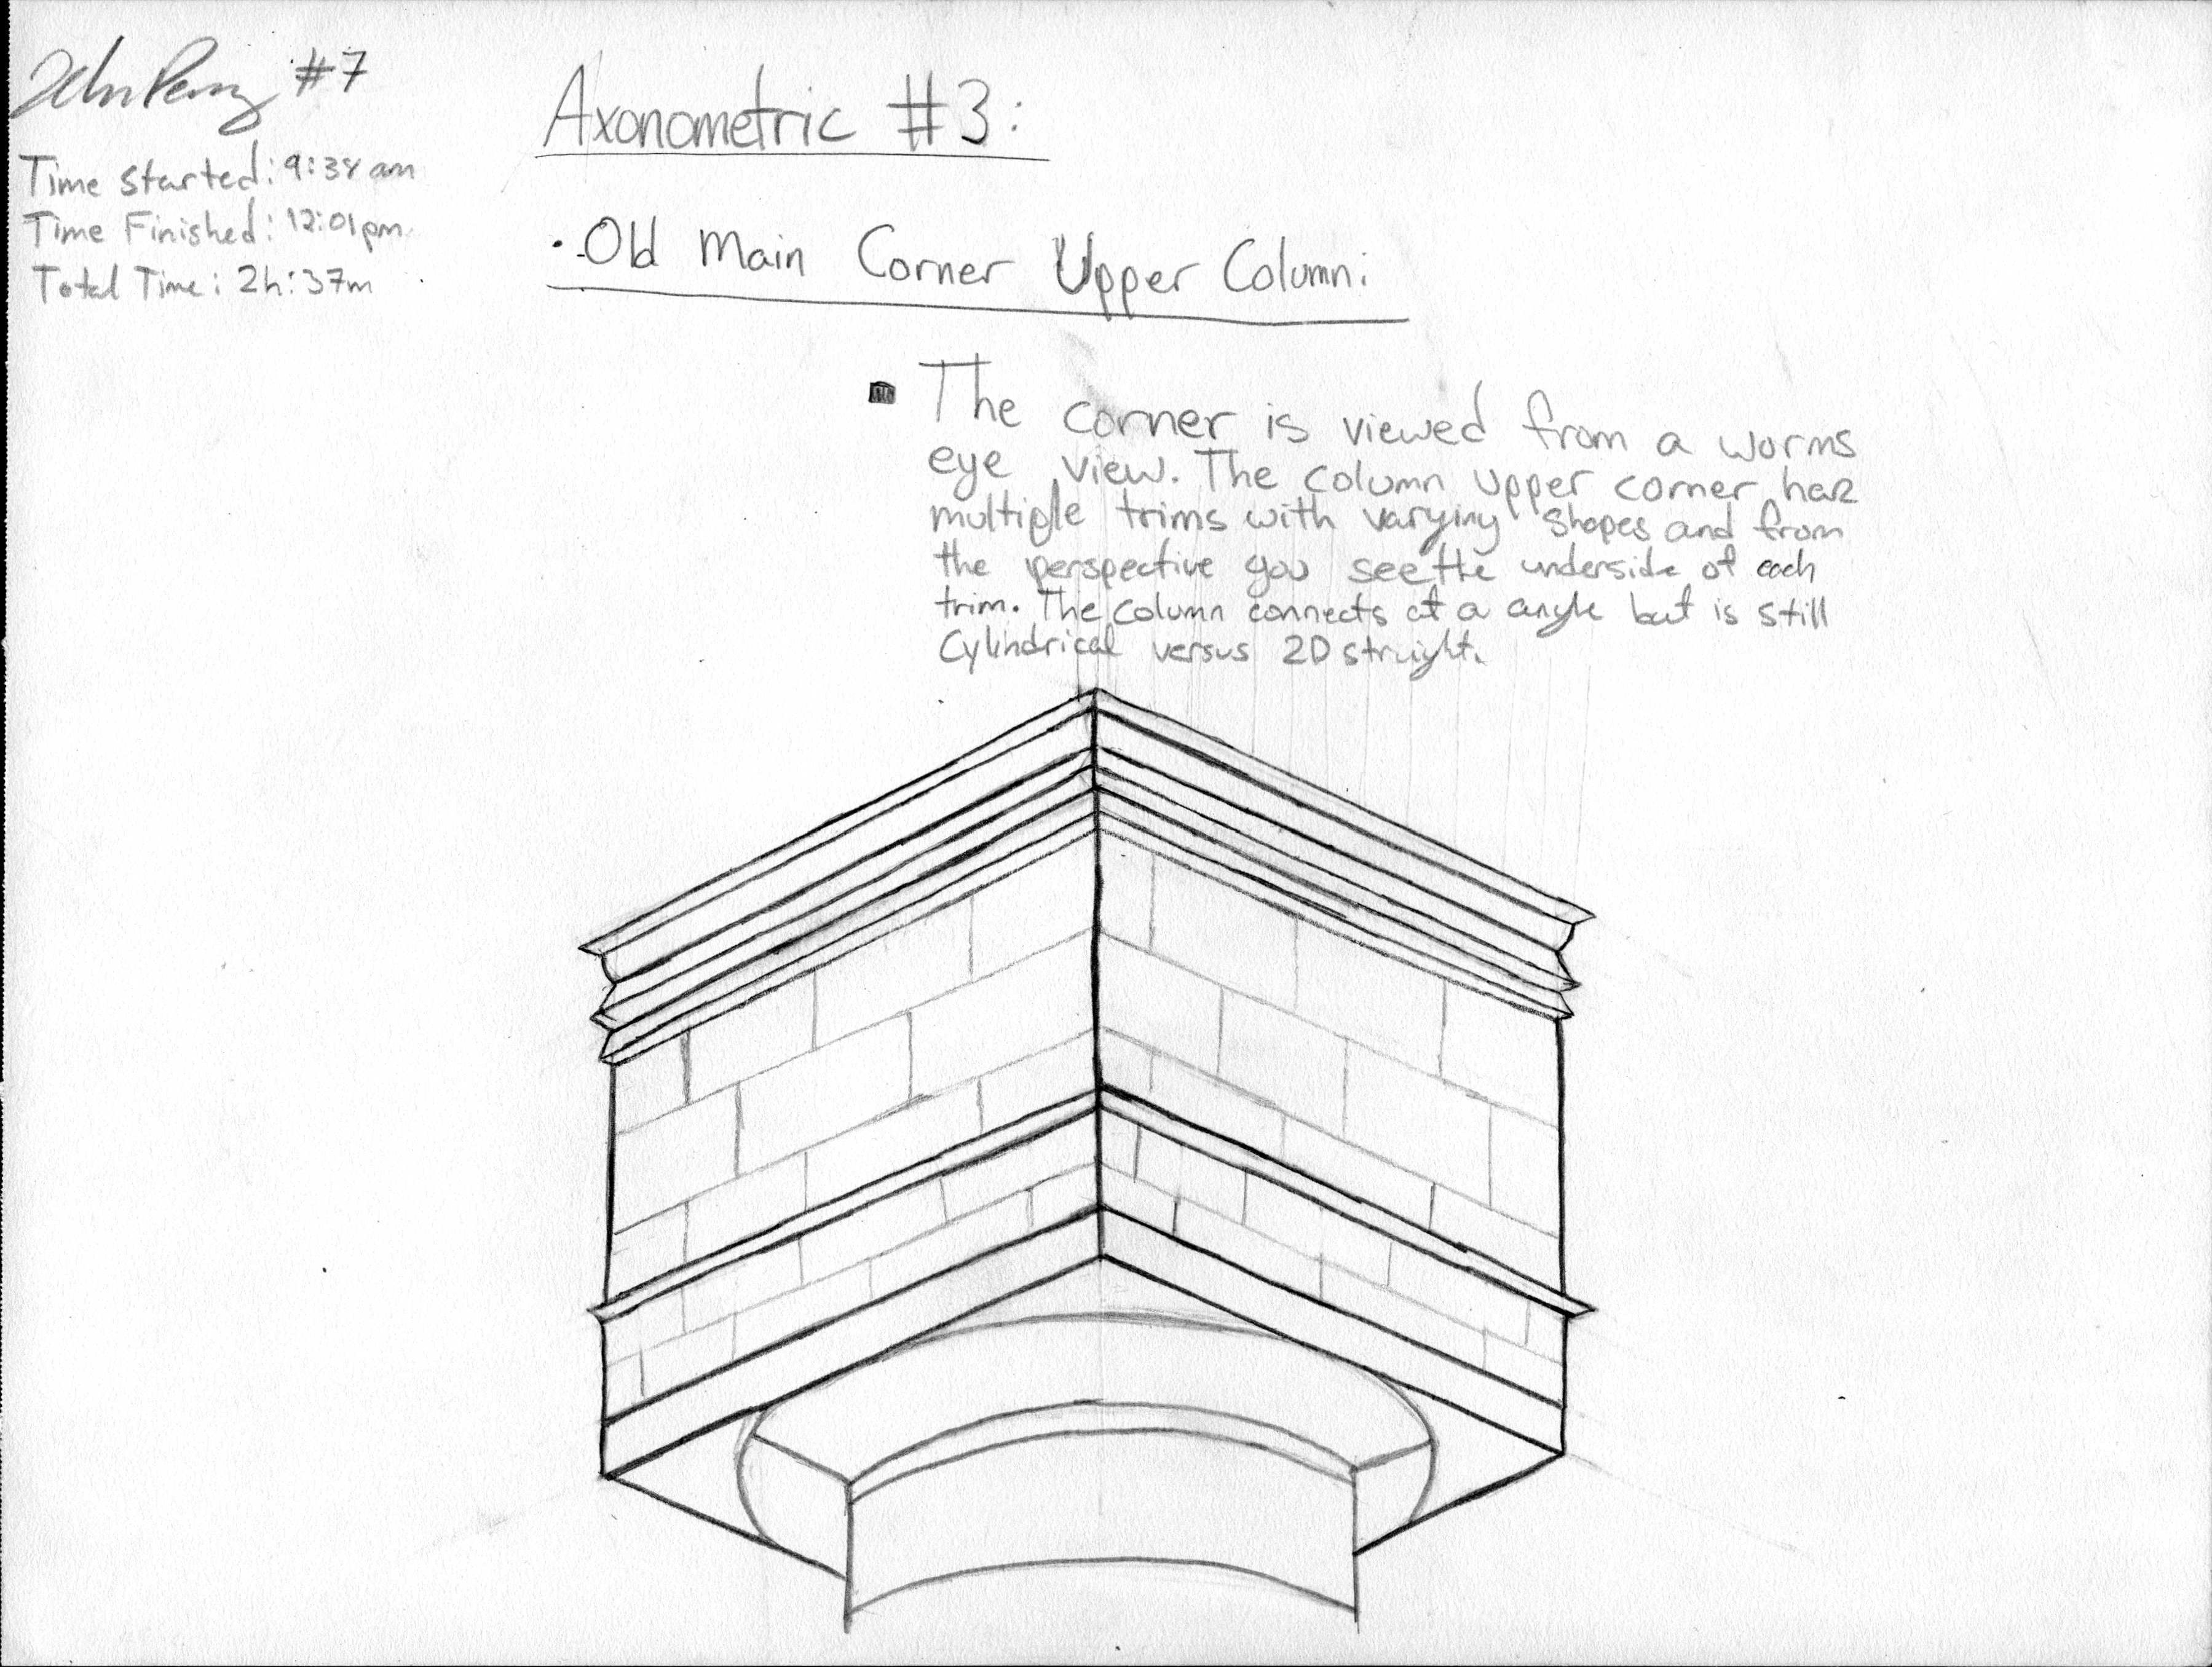 #7
Time Started: 9:38 am
Time Finished: 12:01pm
Total Time: 2h:37m
Axonometric #3:
· Old Main Corner Upper Column:
▪ The corner is viewed from a worms
eye view. The column upper corner has
multiple trims with varying shapes and from
the perspective you see the underside of each
trim. The column connects at a angle but is still
Cylindrical versus 2D straight.